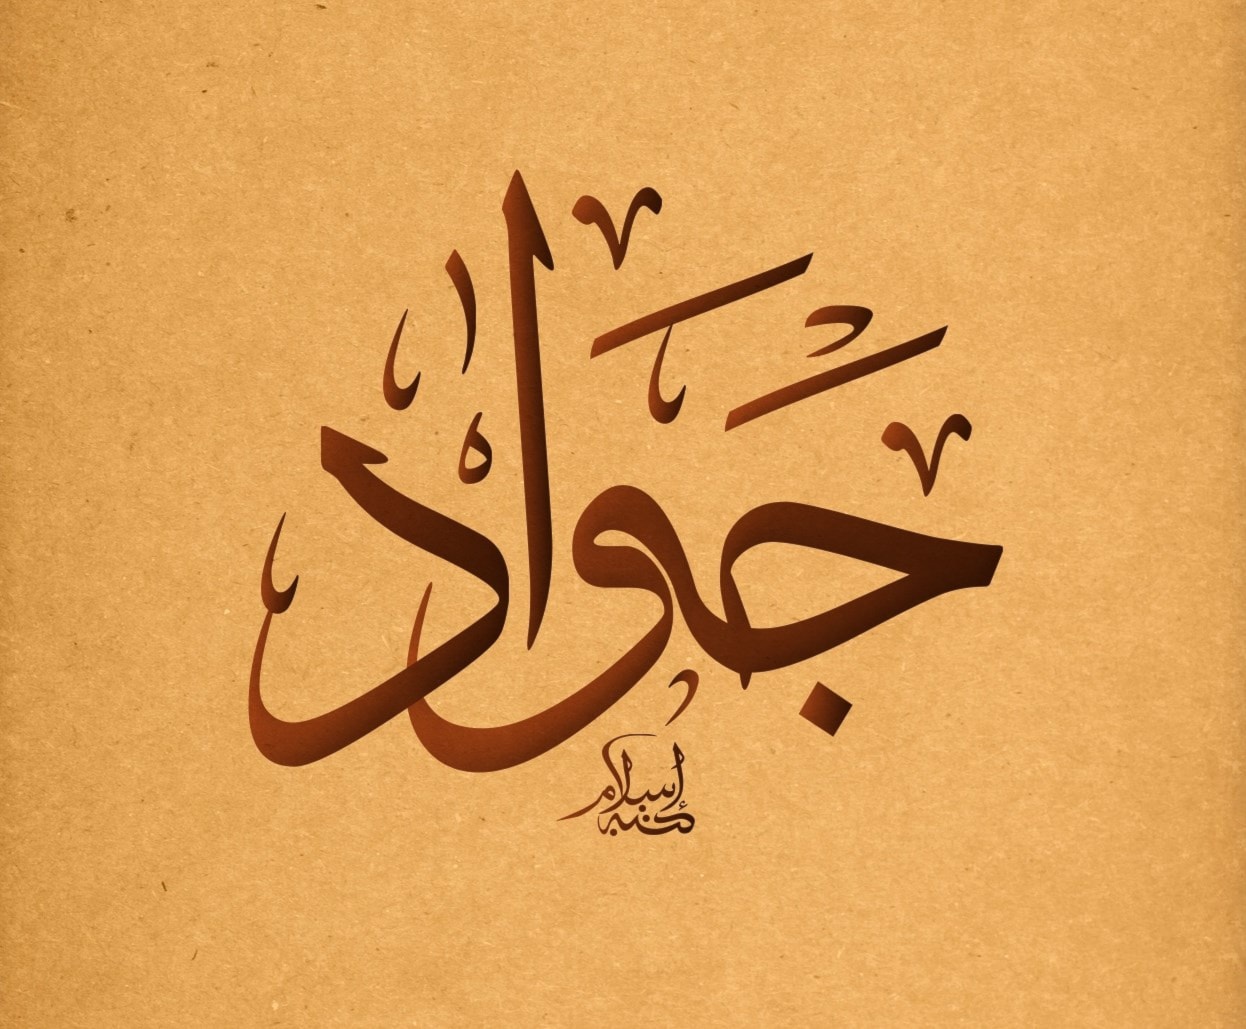 جَوَاد
إسلام
كتبه